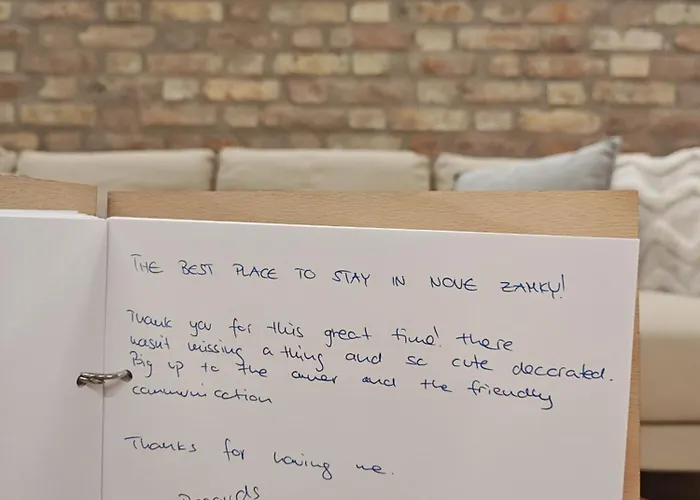 THE BEST PLACE TO STAY IN NOVE ZAMKY!
Thank you for this great time! there
wasn't missing a thing and so cute decorated.
Big up to the owner and the friendly
communication
Thanks for having me.